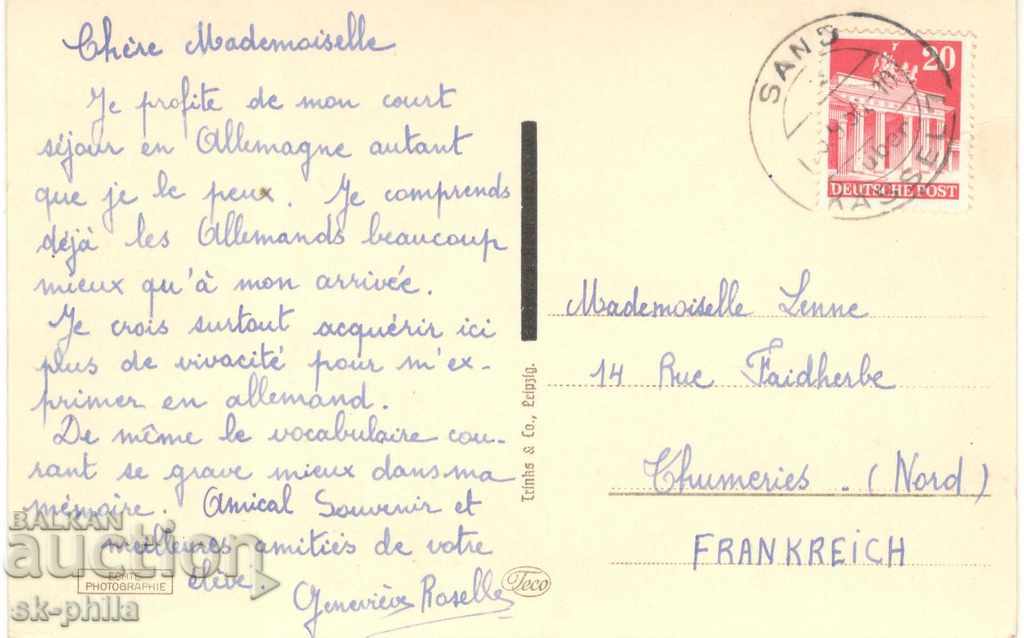 Chère Mademoiselle
Je profite de mon court
séjour en Allemagne autant
que je le peux. Je comprends
déjà les Allemands beaucoup
mieux qu'à mon arrivée.
Je crois surtout acquérir ici
plus de vivacité pour m'ex-
primer en allemand.
De même le vocabulaire cou-
rant se grave mieux dans ma
mémoire. Amical Souvenir et
meilleures amitiés de votre
élève.
Geneviève Roselle
ECHTE
PHOTOGRAPHIE
Teco
Trinks & Co., Leipzig.
SAND
über
KASSEL 7
20
DEUTSCHE POST
Mademoiselle Lenne
14 Rue Faidherbe
Thumeries. (Nord)
FRANKREICH
BALKAN
auction
sk-phila